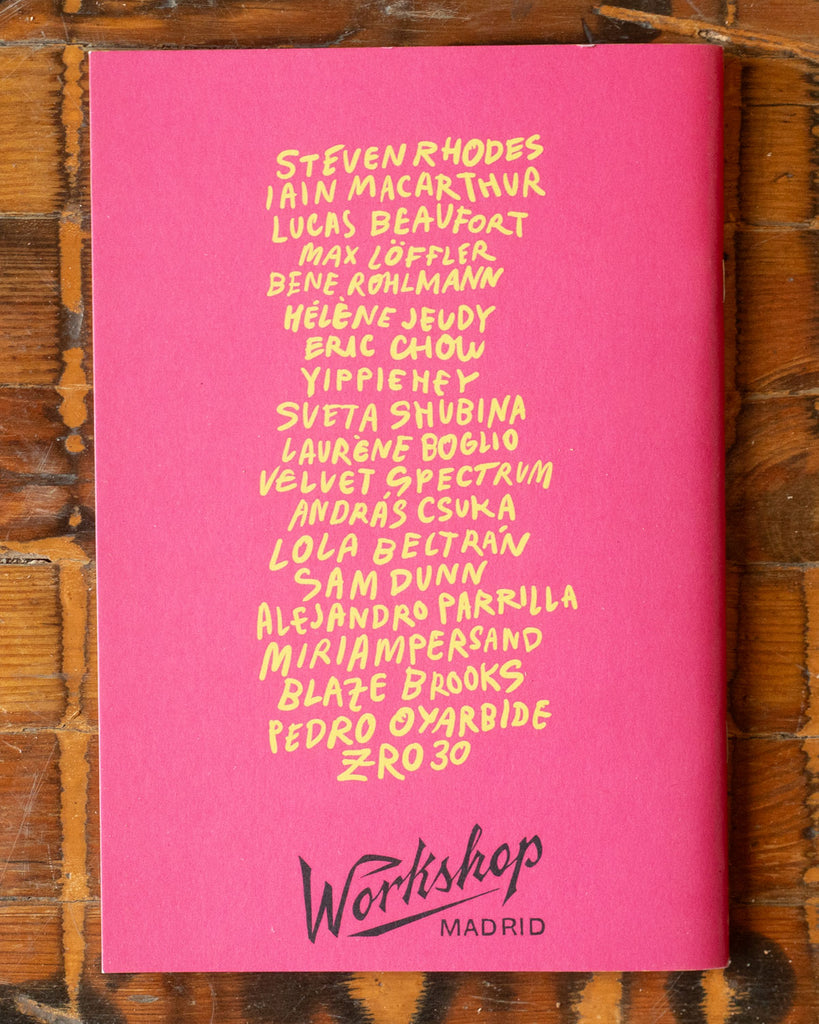 STEVEN RHODES
IAIN MACARTHUR
LUCAS BEAUFORT
MAX LÖFFLER
BENE ROHLMANN
HÉLÈNE JEUDY
ERIC CHOW
YIPPIEHEY
SVETA SHUBINA
LAURÈNE BOGLIO
VELVET SPECTRUM
ANDRÁS CSUKA
LOLA BELTRÁN
SAM DUNN
ALEJANDRO PARRILLA
MIRIAMPERSAND
BLAZE BROOKS
PEDRO OYARBIDE
ZRO30
Workshop
MADRID